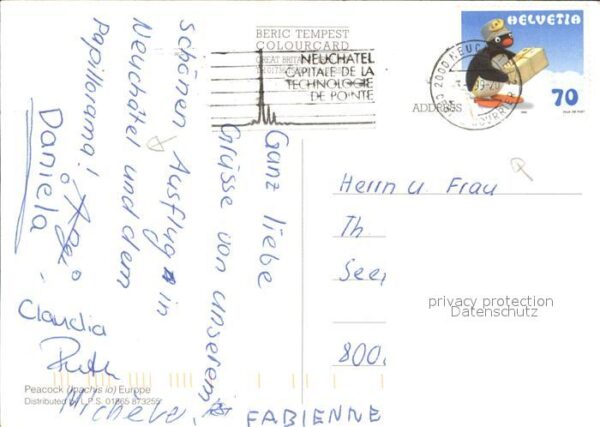 BERIC TEMPEST
COLOURCARD
GREAT BRITAIN
NEUCHATEL
CAPITALE DE LA
TECHNOLOGIE
DE POINTE
HELVETIA
70
2000 NEUCHATEL
ADDRESS
Ganz liebe
Grüsse von unserem
schönen Ausflug in
Neuchâtel und dem
Papillorama!
Daniela
Claudia
Ruth
Michèle,
FABIENNE
Herrn u. Frau
Th.
See
800
privacy protection
Datenschutz
Peacock (Inachis io) Europe
Distributed by L.P.S. 01865 873255